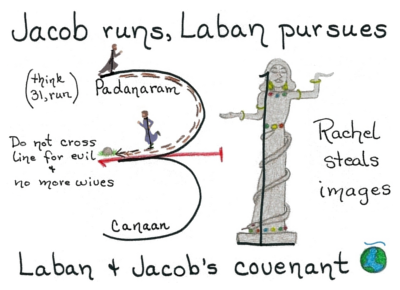 Jacob runs, Laban pursues
(think
31, run)
Padanaram
Do not cross
line for evil
&
no more wives
Canaan
Rachel
steals
images
Laban & Jacob's covenant